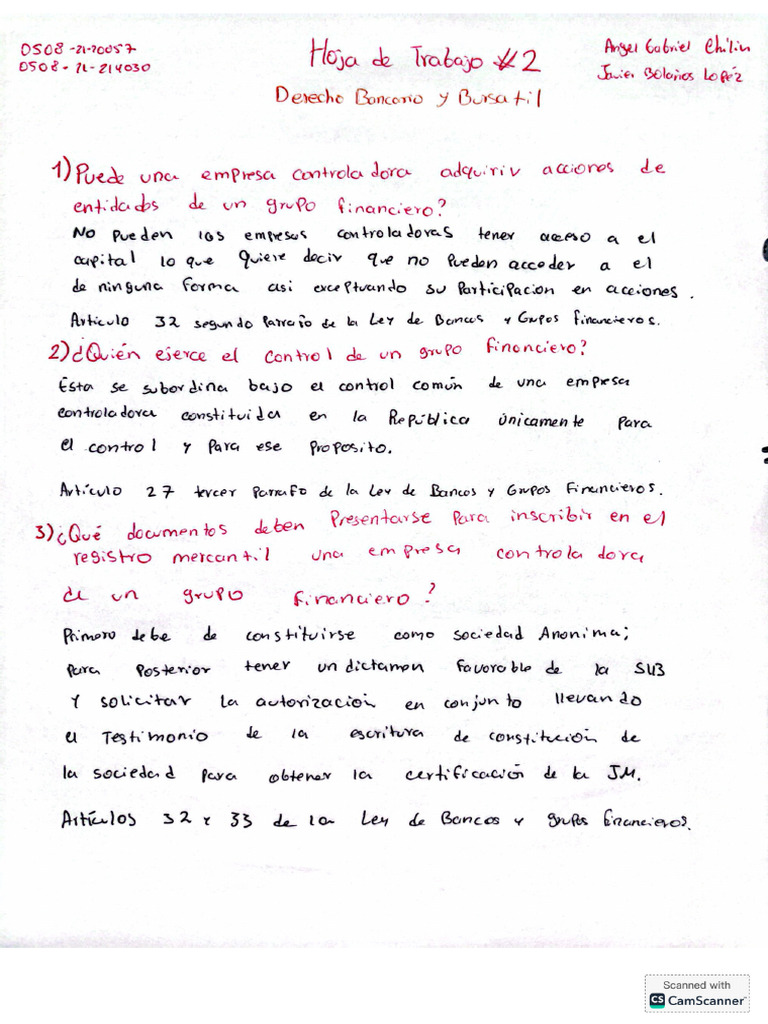 0508-21-20057
0508-21-214030
Hoja de Trabajo #2
Derecho Bancario y Bursatil
Angel Gabriel Chilin
Javier Bolaños Lopéz
1) Puede una empresa controladora adquirir acciones de
entidades de un grupo financiero?
No pueden las empresas controladoras tener acceso a el
capital lo que quiere decir que no pueden acceder a el
de ninguna forma asi exceptuando su participacion en acciones.
Articulo 32 segundo parrafo de la Ley de Bancos y Grupos financieros.
2) ¿Quién ejerce el control de un grupo financiero?
Esta se subordina bajo el control común de una empresa
controladora constituida en la República únicamente para
el control y para ese proposito.
Artículo 27 tercer parrafo de la Ley de Bancos y Grupos Financieros.
3) ¿Qué documentos deben Presentarse para inscribir en el
registro mercantil una empresa controladora
de un grupo financiero?
Primero debe de constituirse como sociedad Anonima;
para posterior tener un dictamen favorable de la SIB
y solicitar la autorización en conjunto llevando
el Testimonio de la escritura de constitución de
la sociedad para obtener la certificación de la JM.
Artículos 32 y 33 de la Ley de Bancos y grupos financieros.
Scanned with
CS CamScanner